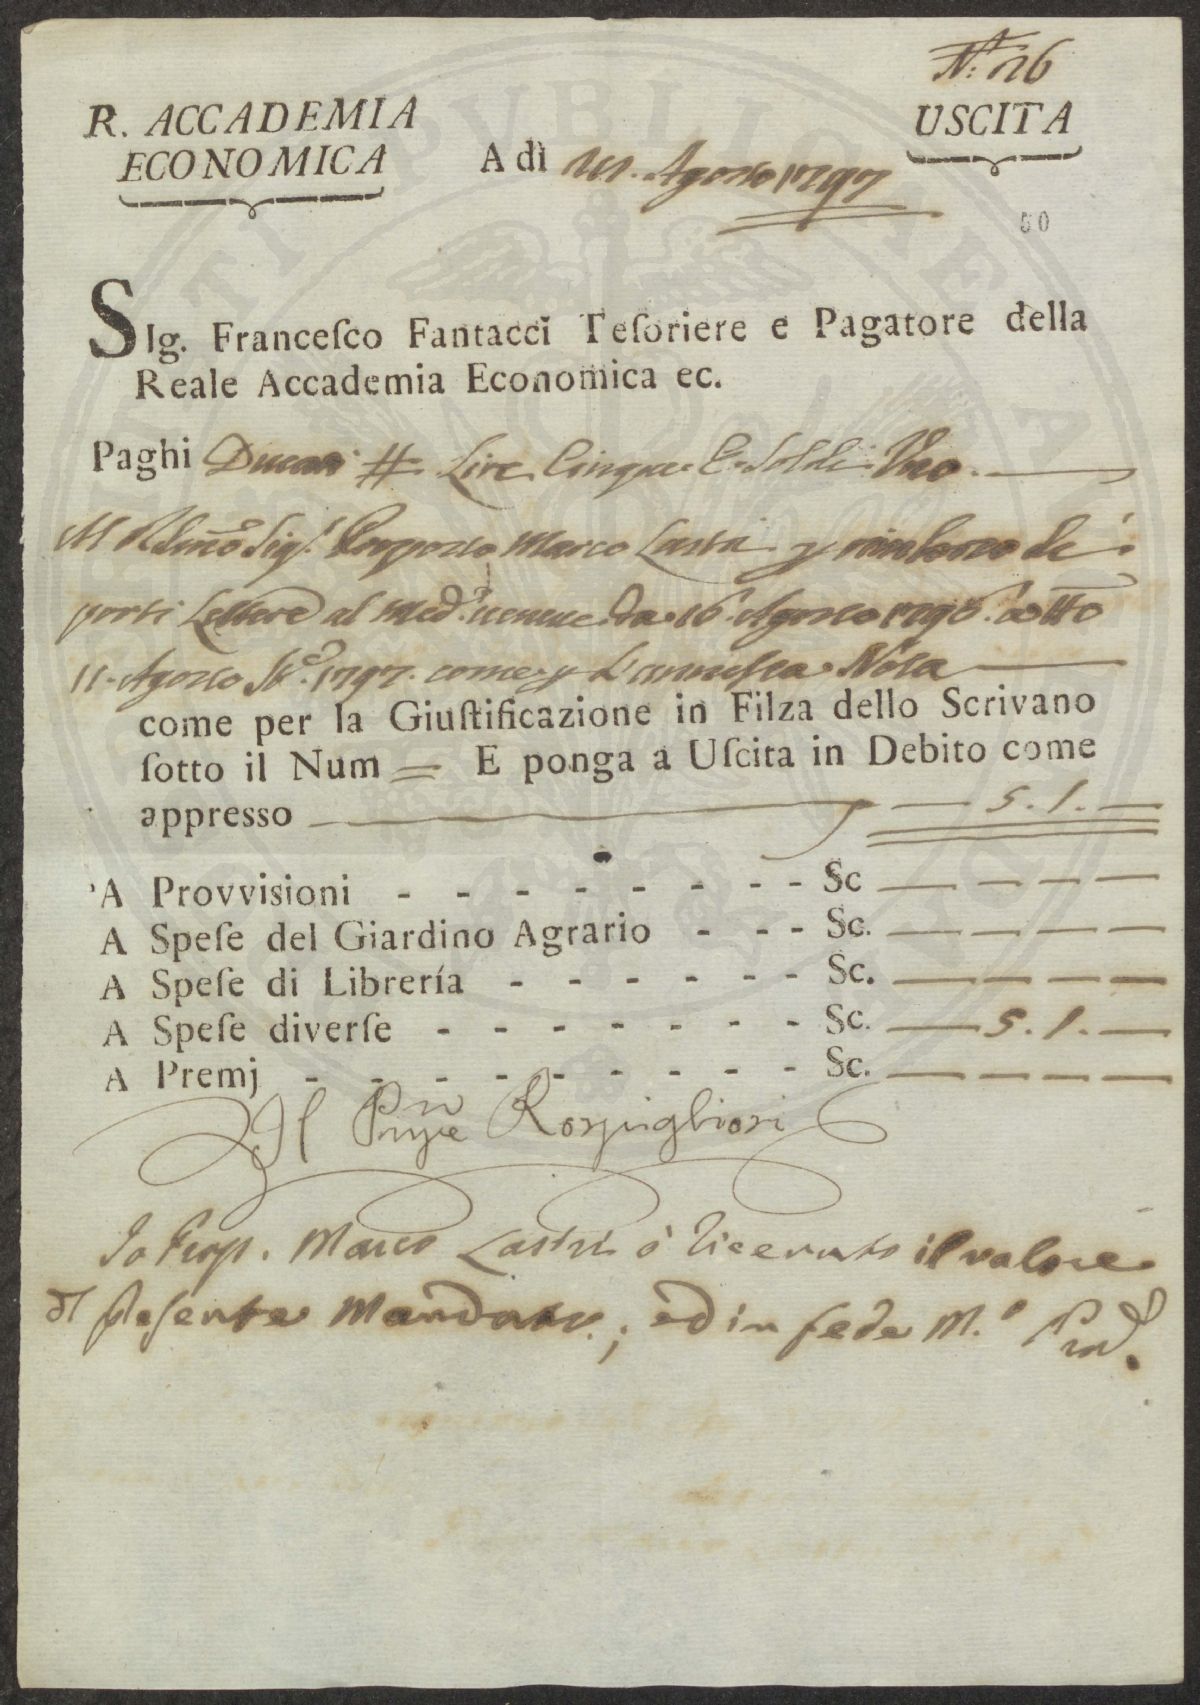 N.° 26
R. ACCADEMIA
ECONOMICA
USCITA
A dì 11. Agosto 1797
50
SIg. Franceſco Fantacci Teſoriere e Pagatore della
Reale Accademia Economica ec.
Paghi Ducati # Lire Cinque E Soldi Uno
Al Rev.mo Sig.r Proposto Marco Lastri p rimborso di
porti Lettere al Med.° venute da 16 Agosto 1796. a tt.o
11. Agosto St.e 1797. come p l'annessa Nota
come per la Giuſtificazione in Filza dello Scrivano
ſotto il Num = E ponga a Uſcita in Debito come
appresso 5. 1.
A Provvisioni - - - - - - - - Sc
A Speſe del Giardino Agrario - - - Sc.
A Speſe di Librería - - - - - - Sc.
A Speſe diverſe - - - - - - - Sc. 5. 1.
A Premj - - - - - - - - - Sc.
Il Pnpe Rospigliosi
Io Prop. Marco Lastri ò ricevuto il valore
dl presente Mandato; ed in fede M.°